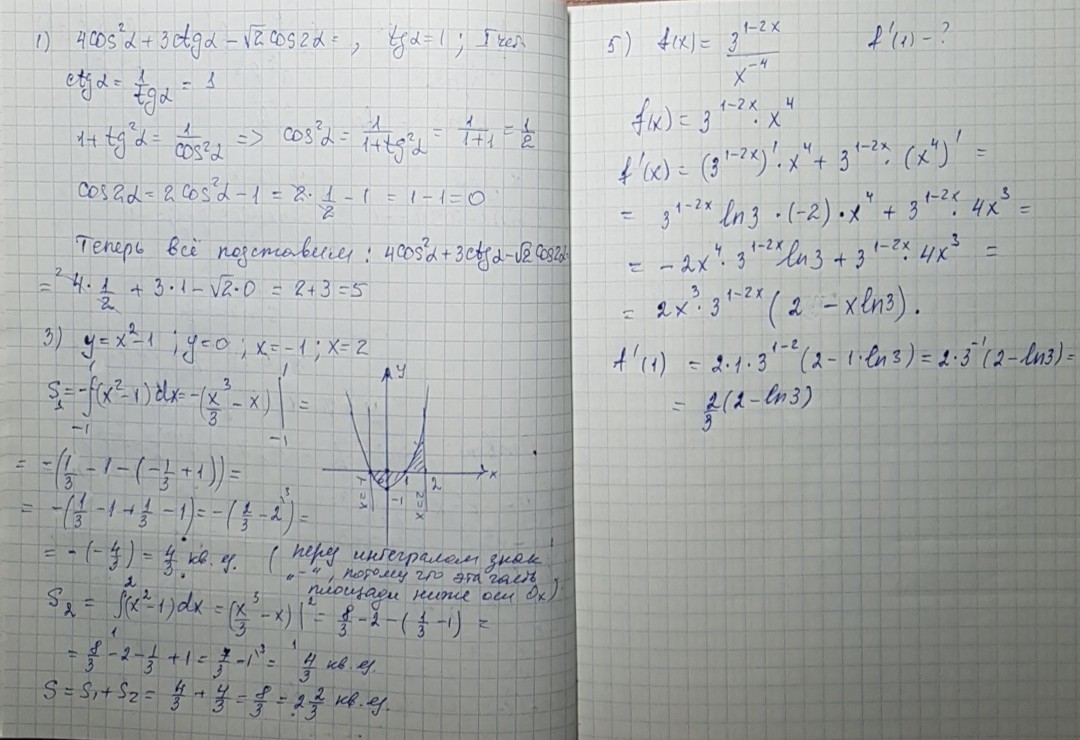 1) 4cos²α + 3ctgα – √2 cos2α = , tgα = 1 ; I чет.
ctgα = 1/tgα = 1
1 + tg²α = 1/cos²α => cos²α = 1/(1+tg²α) = 1/(1+1) = 1/2
cos2α = 2cos²α – 1 = 2·1/2 – 1 = 1 – 1 = 0
Теперь всё подставим : 4cos²α + 3ctgα – √2 cos2α
= 4·1/2 + 3·1 – √2·0 = 2 + 3 = 5
3) y = x² – 1 ; y = 0 ; x = –1 ; x = 2
S₁ = –∫₋₁¹(x² – 1)dx = –(x³/3 – x)|₋₁¹ =
= –(1/3 – 1 – (–1/3 + 1)) =
= –(1/3 – 1 + 1/3 – 1) = –(2/3 – 2) =
= –(–4/3) = 4/3 кв. ед. ( перед интегралом знак
„–“, потому что эта часть
площади ниже оси Ox)
S₂ = ∫₁²(x² – 1)dx = (x³/3 – x)|₁² = 8/3 – 2 – (1/3 – 1) =
= 8/3 – 2 – 1/3 + 1 = 7/3 – 1 = 4/3 кв. ед.
S = S₁ + S₂ = 4/3 + 4/3 = 8/3 = 2 2/3 кв. ед.
y
x
1
2
–1
x=–1
x=2
5) f(x) = 3^(1–2x) / x^(–4) f'(1) – ?
f(x) = 3^(1–2x) · x⁴
f'(x) = (3^(1–2x))' · x⁴ + 3^(1–2x) · (x⁴)' =
= 3^(1–2x) ln3 · (–2) · x⁴ + 3^(1–2x) · 4x³ =
= – 2x⁴ · 3^(1–2x) ln3 + 3^(1–2x) · 4x³ =
= 2x³ · 3^(1–2x) (2 – xln3).
f'(1) = 2·1·3^(1–2) (2 – 1·ln3) = 2·3^(–1) (2 – ln3) =
= 2/3 (2 – ln3)